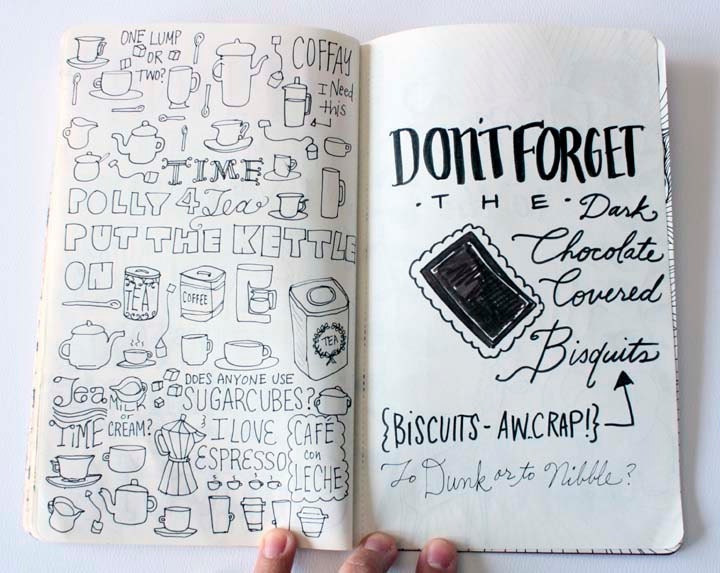 ONE LUMP
OR
TWO?
COFFAY
I Need
this
TIME
POLLY 4 Tea
PUT THE KETTLE
ON
TEA
COFFEE
TEA
Tea
TIME
MILK
or
CREAM?
DOES ANYONE USE
SUGARCUBES?
I LOVE
ESPRESSO
CAFÉ
con
LECHE
DON'T FORGET
· THE · Dark
Chocolate
Covered
Bisquits
{BISCUITS - AW..CRAP!}
To Dunk or to Nibble?